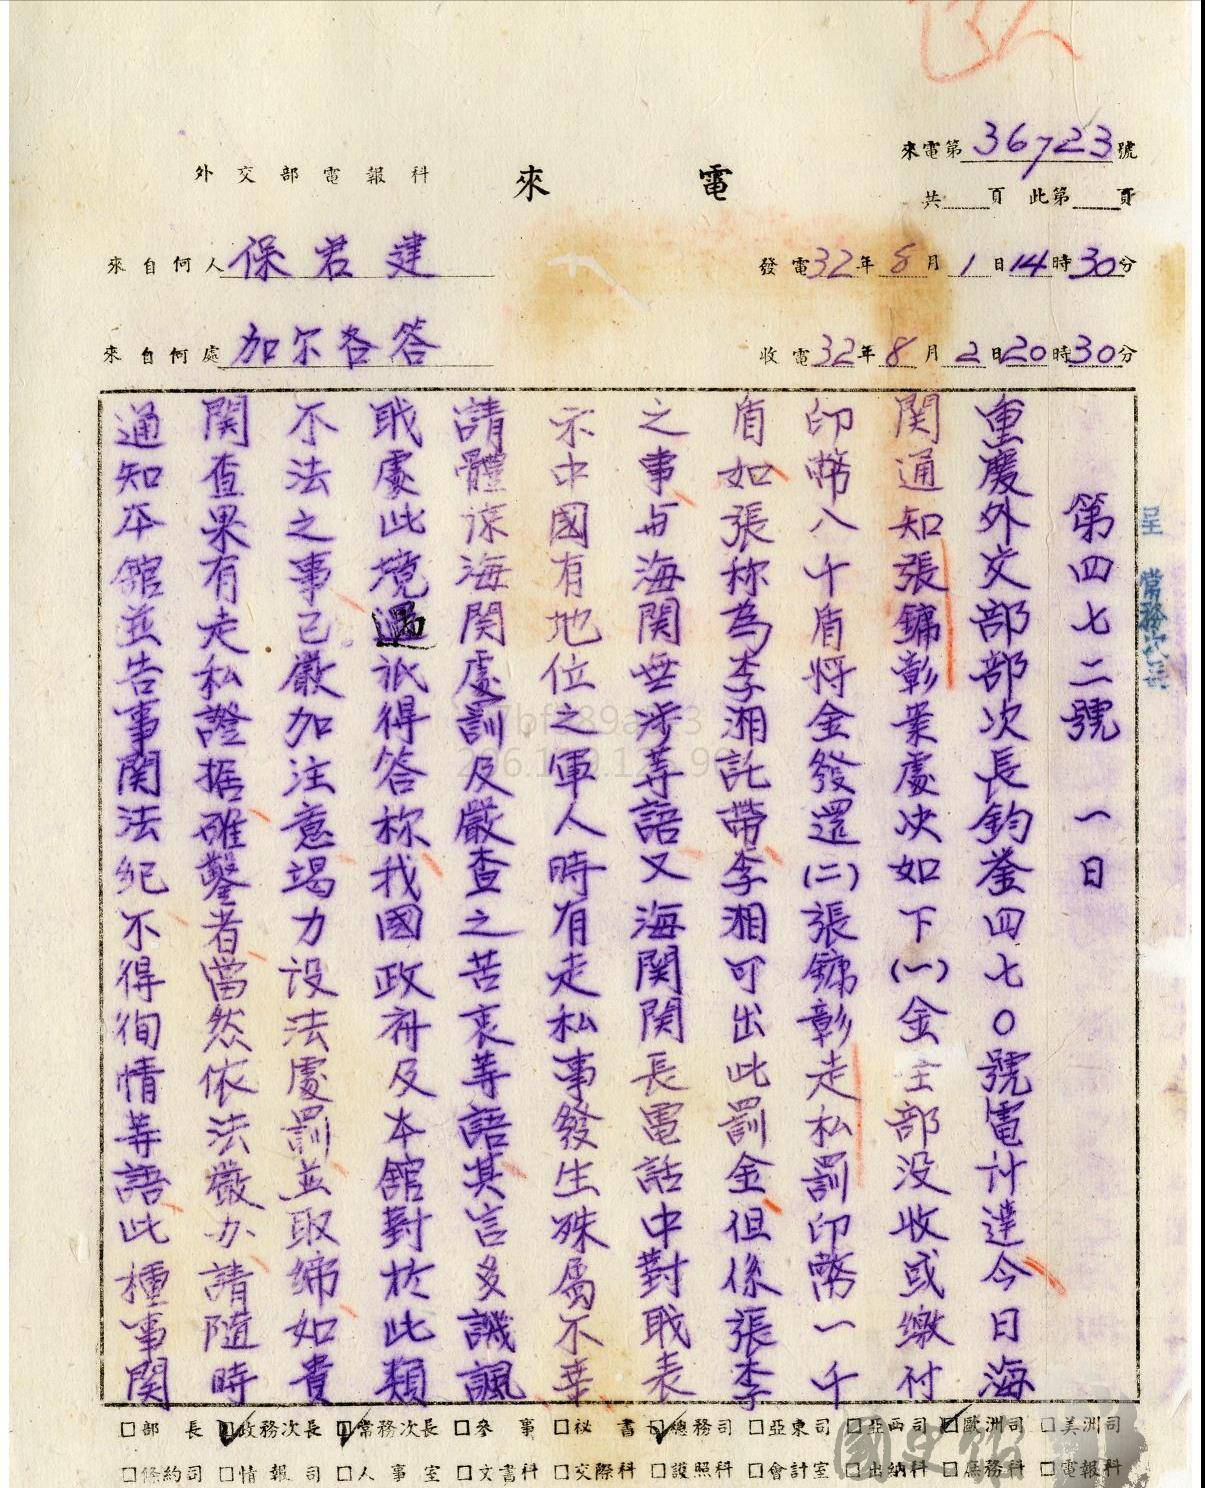 來電第36723號
共 頁 此第 頁
外交部電報科
來電
來自何人 保君建
發電32年8月1日14時30分
來自何處 加尔各答
收電32年8月2日20時30分
呈 常務次長
第四七二號 一日
重慶外交部部次長鈞鉴四七〇號電計達今日海
関通知張鏞彰業處决如下(一)金主部没收或繳付
印幣八千盾将金發還(二)張鏞彰走私罰印幣一千
盾如張称為李湘託帶李湘可出此罰金但係張李
之事与海関無涉等語又海関関長電話中對戢表
示中國有地位之軍人時有走私事發生殊屬不幸
請體諒海関處訓及嚴查之苦衷等語其言多譏諷
戢處此境遇祇得答称我國政府及本館對於此類
不法之事已嚴加注意竭力设法處罰並取缔如貴
関查果有走私證据確鑿者當然依法嚴办請隨時
通知本館並告事関法紀不得徇情等語此種事関
□部長 □政務次長 □常務次長 □參事 □秘書 □總務司 □亞東司 □亞西司 □歐洲司 □美洲司
□條約司 □情報司 □人事室 □文書科 □交際科 □護照科 □會計室 □出納科 □庶務科 □電報科
國史館